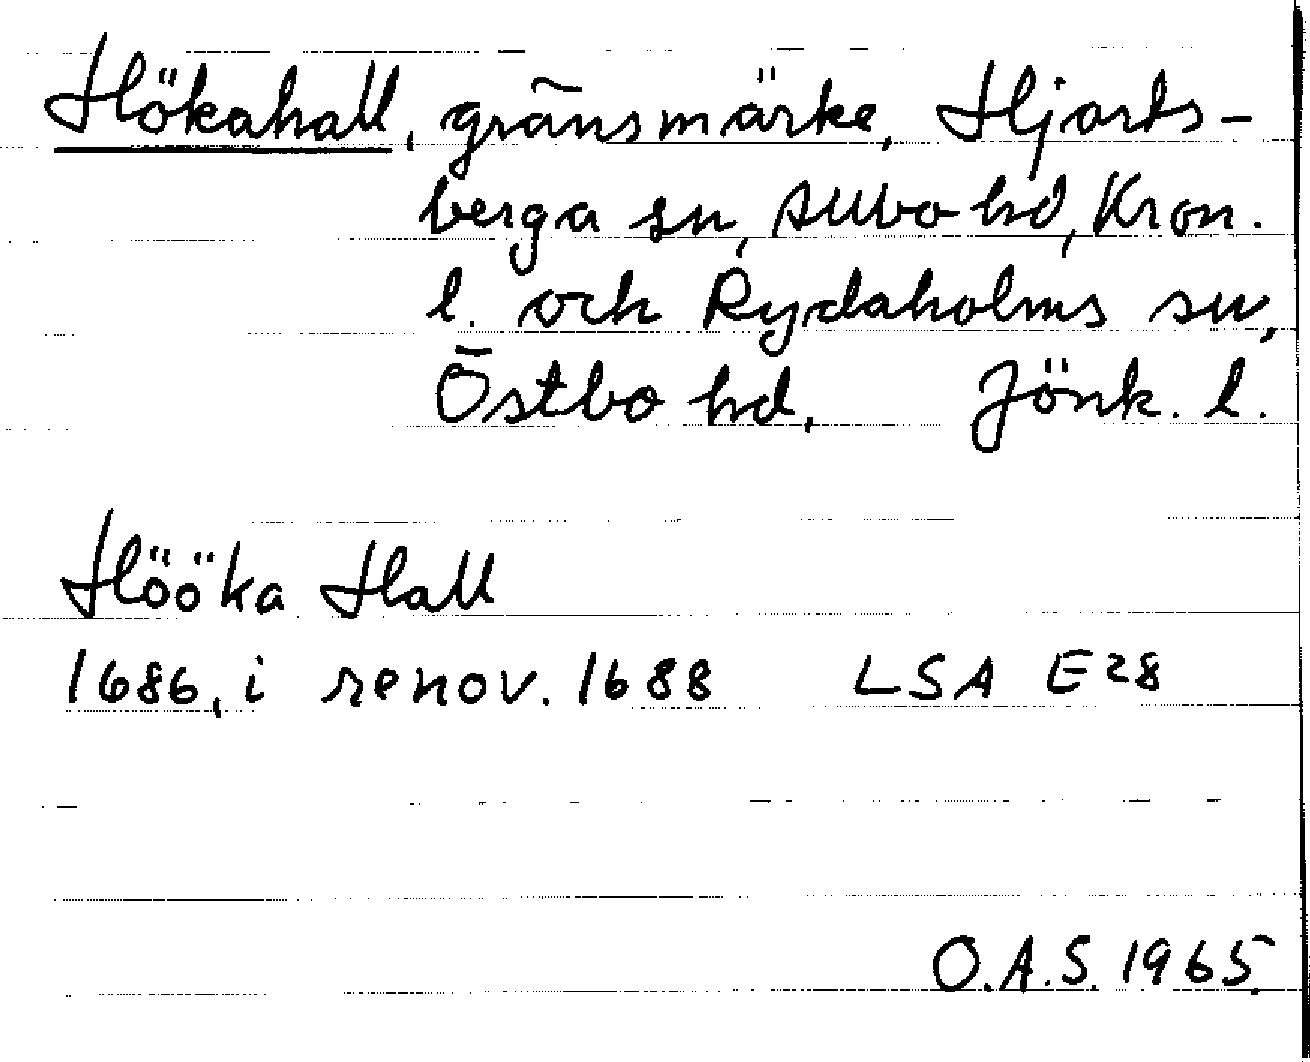 Hökahall, gränsmärke, Hjorts-
berga sn, Allbo hd, Kron.
l. och Rydaholms sn,
Östbo hd, Jönk. l.
Hööka Hall
1686, i renov. 1688 LSA E28
O.A.S. 1965.